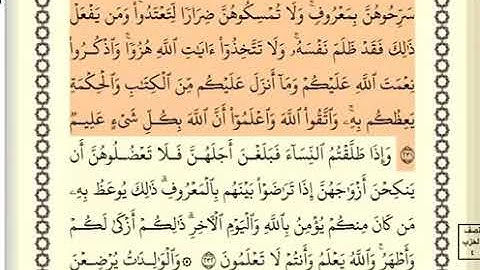 سَرِّحُوهُنَّ بِمَعْرُوفٍ ۚ وَلَا تُمْسِكُوهُنَّ ضِرَارًا لِّتَعْتَدُوا۟ ۚ وَمَن يَفْعَلْ
ذَٰلِكَ فَقَدْ ظَلَمَ نَفْسَهُۥ ۚ وَلَا تَتَّخِذُوٓا۟ ءَايَٰتِ ٱللَّهِ هُزُوًا ۚ وَٱذْكُرُوا۟
نِعْمَتَ ٱللَّهِ عَلَيْكُمْ وَمَآ أَنزَلَ عَلَيْكُم مِّنَ ٱلْكِتَٰبِ وَٱلْحِكْمَةِ
يَعِظُكُم بِهِۦ ۚ وَٱتَّقُوا۟ ٱللَّهَ وَٱعْلَمُوٓا۟ أَنَّ ٱللَّهَ بِكُلِّ شَىْءٍ عَلِيمٌ
٢٣١ وَإِذَا طَلَّقْتُمُ ٱلنِّسَآءَ فَبَلَغْنَ أَجَلَهُنَّ فَلَا تَعْضُلُوهُنَّ أَن
يَنكِحْنَ أَزْوَٰجَهُنَّ إِذَا تَرَٰضَوْا۟ بَيْنَهُم بِٱلْمَعْرُوفِ ۗ ذَٰلِكَ يُوعَظُ بِهِۦ
مَن كَانَ مِنكُمْ يُؤْمِنُ بِٱللَّهِ وَٱلْيَوْمِ ٱلْءَاخِرِ ۗ ذَٰلِكُمْ أَزْكَىٰ لَكُمْ
وَأَطْهَرُ ۗ وَٱللَّهُ يَعْلَمُ وَأَنتُمْ لَا تَعْلَمُونَ ٢٣٢ ۞ وَٱلْوَٰلِدَٰتُ يُرْضِعْنَ
نصف
الحزب
٤